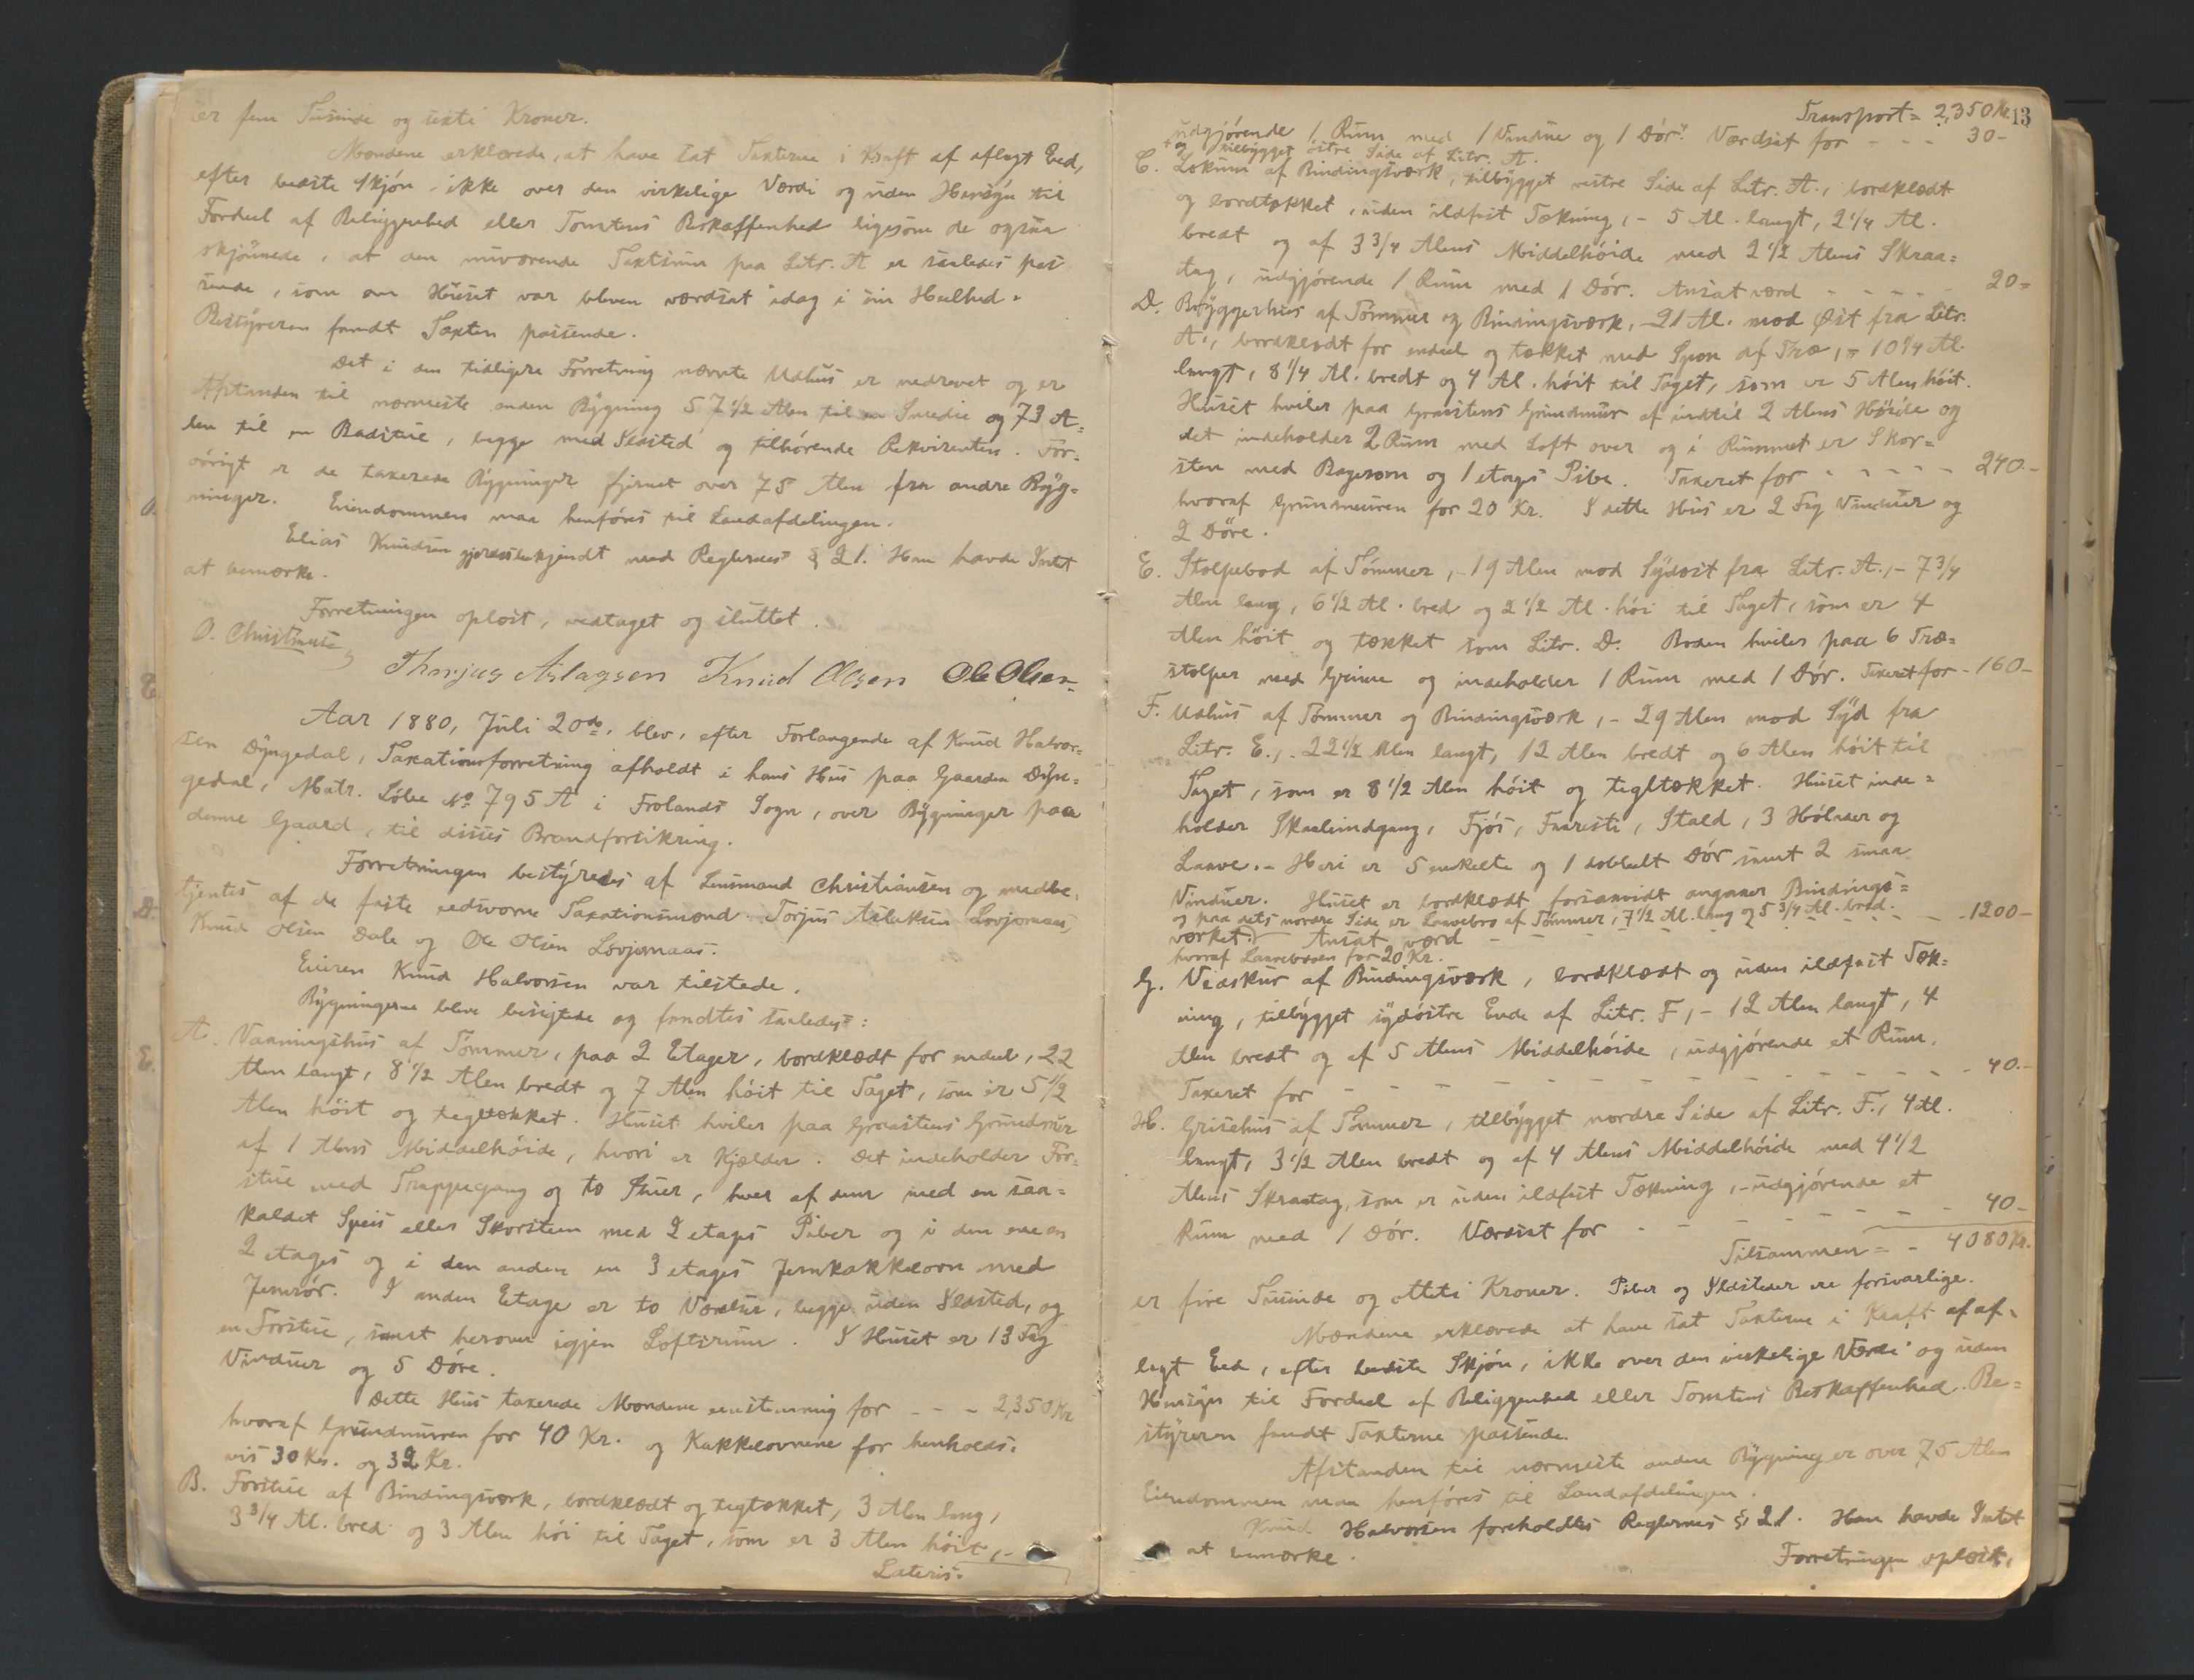 er fem Tusinde og sexti Kroner.
Mændene erklærede, at have sat Taxterne i Kraft af aflagt Eed,
efter bedste Skjøn - ikke over den virkelige Værdi og uden Hensyn til
Fordeel af Beliggenhed eller Tomtens Beskaffenhed ligesom de ogsaa
skjønnede, at den nuværende Taxtsum paa Litr. A er saaledes pas
sende, som om Huset var bleven værdsat idag i sin Heelhed.
Bestyreren fandt Taxten passende.
Det i den tidligere Forretning nævnte Udhus er nedrevet og er
Afstanden til nærmeste anden Bygning 57 1/2 Alen til en Smedie og 73 A-
len til en Badstue, begge med Ildsted og tilhørende Rekvirenten. For-
øvrigt er de taxerede Bygninger fjernet over 75 Alen fra andre Byg-
ninger. Eiendommen maa henføres til Landafdelingen.
Elias Knudsen gjordes bekjendt med Reglernes § 21. Han havde Intet
at bemærke.
Forretningen oplæst, vedtaget og sluttet.
O. Christiansen
Thorjus Aslagsen Knud Olsen Ole Olsen
Aar 1880, Juli 20de, blev, efter Forlangende af Knud Halvor-
sen Dyngedal, Taxationsforretning afholdt i hans Hus paa Gaarden Dyn-
gedal, Matr. Løbe No 795 A i Frolands Sogn, over Bygninger paa
denne Gaard, til disses Brandforsikring.
Forretningen bestyredes af Lensmand Christiansen og medbe-
tjentes af de faste edsvorne Taxationsmænd Torjus Aslaksen Lovjomaas,
Knud Olsen Dale og Ole Olsen Lovjomaas.
Eieren Knud Halvorsen var tilstede.
Bygningerne bleve besigtede og fandtes saaledes:
A. Vaaningshus af Tømmer, paa 2 Etager, bordklædt for endeel, 22
Alen langt, 8 1/2 Alen bredt og 7 Alen høit til Taget, som er 5 1/2
Alen høit og tegltækket. Huset hviler paa Graastens Grundmur
af 1 Alens Middelhøide, hvori er Kjælder. Det indeholder For-
stue med Trappegang og to Stuer, hver af dem med en saa-
kaldet Speis eller Skorsteen med 2 etages Piber og i den ene en
2 etages og i den anden en 3 etages Jernkakkelovn med
Jernrør. I anden Etage er to Værelser, begge uden Ildsted, og
en Forstue, samt herover igjen Loftsrum. I Huset er 13 Fag
Vinduer og 5 Døre.
Dette Hus taxerede Mændene eenstemmig for - - - 2,350 Kr
hvoraf Grundmuren for 40 Kr. og Kakkelovnene for henholds-
vis 30 Kr. og 32 Kr.
B. Forstue af Bindingsværk, bordklædt og tegltækket, 3 Alen lang,
3 3/4 Al. bred og 3 Alen høi til Taget, som er 3 Alen høit, -
Lateris.
Transport = 2,350 Kr. 13
udgjørende 1 Rum med 1 Vindue og 1 Dør + Værdsat for - - - 30 -
+ og tilbygget østre Side af Litr. A.
C. Lokum af Bindingsværk, tilbygget vestre Side af Litr. A., bordklædt
og bordtækket, uden ildfast Tækning, - 5 Al. langt, 2 1/4 Al.
bredt og af 3 3/4 Alens Middelhøide med 2 1/2 Alens Skraa-
tag, udgjørende 1 Rum med 1 Dør. Ansat værd - - - - - 20 -
D. Bryggerhus af Tømmer og Bindingsværk, - 21 Al. mod Øst fra Litr.
A., bordklædt for endeel og tækket med Spon af Træ, - 10 1/4 Al.
langt, 8 1/4 Al. bredt og 4 Al. høit til Taget, som er 5 Alen høit.
Huset hviler paa Graastens Grundmur af indtil 2 Alens Høide og
det indeholder 2 Rum med Loft over og i Rummet er Skor-
sten med Bagerovn og 1 etages Pibe. Taxeret for - - - - - 240. -
hvoraf Grundmuren for 20 Kr. I dette Hus er 2 Fag Vinduer og
2 Døre.
E. Stolpebod af Tømmer, - 19 Alen mod Sydost fra Litr. A., - 7 3/4
Alen lang, 6 1/2 Al. bred og 2 1/2 Al. høi til Taget, som er 4
Alen høit og tækket som Litr. D. Boden hviler paa 6 Træ-
stolper med Grime og indeholder 1 Rum med 1 Dør. Taxeret for - 160 -
F. Udhus af Tømmer og Bindingsværk, - 29 Alen mod Syd fra
Litr. E., - 22 1/2 Alen langt, 12 Alen bredt og 6 Alen høit til
Taget, som er 8 1/2 Alen høit og tegltækket. Huset inde-
holder Skaaleindgang, Fjøs, Faaresti, Stald, 3 Hølader og
Laave. - Heri er 5 enkelte og 1 dobbelt Dør samt 2 smaa
Vinduer. Huset er bordklædt forsaavidt angaaer Bindings-
og paa dets nordre Side er Laavebro af Tømmer, 7 1/2 Al. lang og 5 3/4 Al. bred.
værket. Ansat værd - - - - - - - 1200 -
hvoraf Laavebroen for 20 Kr.
G. Vedskur af Bindingsværk, bordklædt og uden ildfast Tæk-
ning, tilbygget sydøstre Ende af Litr. F, - 12 Alen langt, 4
Alen bredt og af 5 Alens Middelhøide, udgjørende et Rum.
Taxeret for - - - - - - - - - - 40. -
H. Grisehus af Tømmer, tilbygget nordre Side af Litr. F., 4 Al.
langt, 3 1/2 Alen bredt og af 4 Alens Middelhøide med 4 1/2
Alens Skraatag, som er uden ildfast Tækning, - udgjørende et
Rum med 1 Dør. Værdsat for - - - - - - - 40 -
Tilsammen = - 4080 Kr.
er fire Tusinde og otteti Kroner. Piber og Ildsteder ere forsvarlige.
Mændene erklærede at have sat Taxterne i Kraft af af-
lagt Eed, efter bedste Skjøn, ikke over den virkelige Værdi og uden
Hensyn til Fordeel af Beliggenhed eller Tomtens Beskaffenhed. Be-
styreren fandt Taxterne passende.
Afstanden til nærmeste anden Bygning er over 75 Alen
Eiendommen maa henføres til Landafdelingen.
Knud Halvorsen foreholdtes Reglernes § 21. Han havde Intet
at bemærke.
Forretningen oplæst,